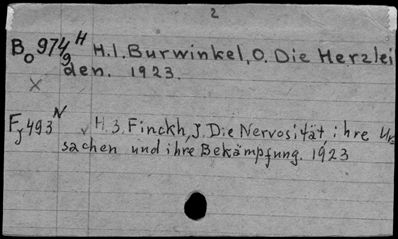 2
Bo 974g H H.1. Burwinkel, O. Die Herzlei
den. 1923.
X
Fy 493 N √ H.3. Finckh, J. Die Nervosität, ihre Ur
sachen und ihre Bekämpfung. 1923